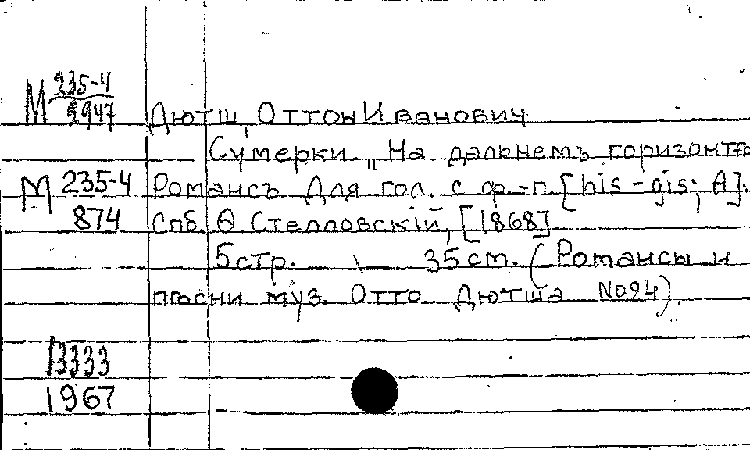 М 235-4
9947
Дютш, Оттон Иванович
Сумерки. „На дальнемъ горизонтѣ
М 235-4 Романсъ для гол. с ф-п. [his-gis; A].
874 Спб. Ѳ. Стелловскій, [1868]
5 стр. 35 см. (Романсы и
пѣсни муз. Отто Дютша №24).
13333
1967